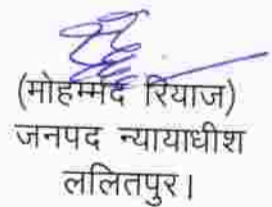 (मोहम्मद रियाज)
जनपद न्यायाधीश
ललितपुर।